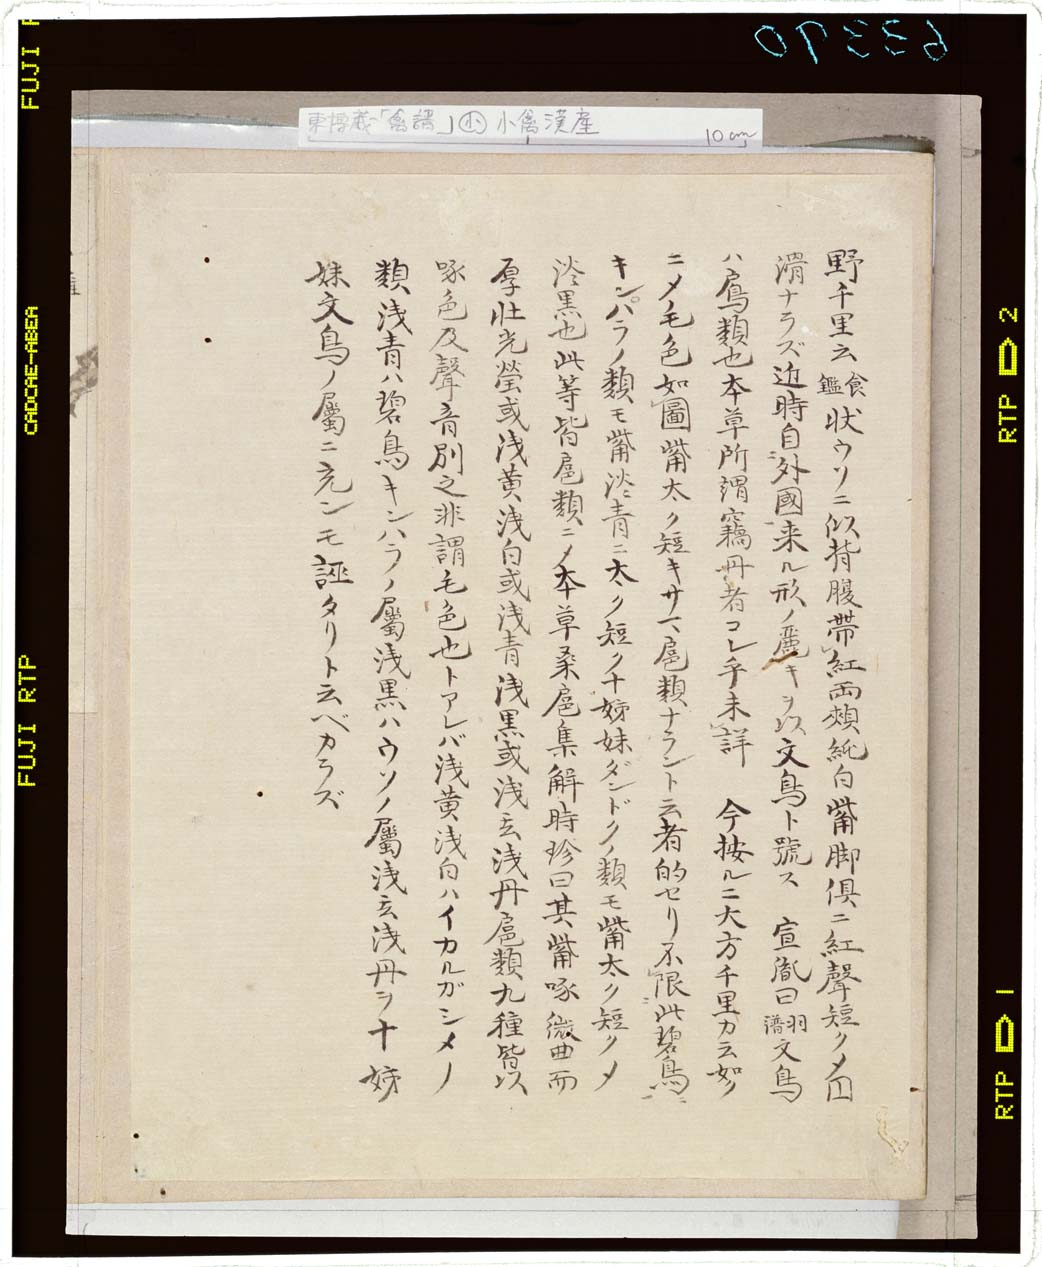 63390
東博蔵「禽譜」㊥小禽漢産
10cm
野千里云食鑑状ウソニ似背腹帯紅両頬純白觜脚倶ニ紅聲短クメ円
滑ナラズ近時自外國来ル形ノ麗キヲ以文鳥ト號ス 宣胤曰羽譜文鳥
ハ鳸類也本草所謂竊丹者コレ乎未詳 今按ルニ大方千里カ云如ク
ニメ毛色如圖觜太ク短キサマ扈類ナラント云者的セリ不限此碧鳥
キンパラノ類モ觜淡青ニ太ク短ク十姊妹ダンドクノ類モ觜太ク短クメ
淡黒也此等皆扈類ニメ本草桑扈集解時珍曰其觜啄微曲而
厚壮光瑩或浅黄浅白或浅青浅黒或浅玄浅丹扈類九種皆以
啄色及聲音別之非謂毛色也トアレバ浅黄浅白ハイカルガシメノ
類浅青ハ碧鳥キンハラノ屬浅黒ハウソノ屬浅玄浅丹ヲ十姊
妹文鳥ノ屬ニ充ンモ誣タリト云ベカラズ
FUJI RTP
CADCAE-ABER
FUJI
RTP 2
RTP 1